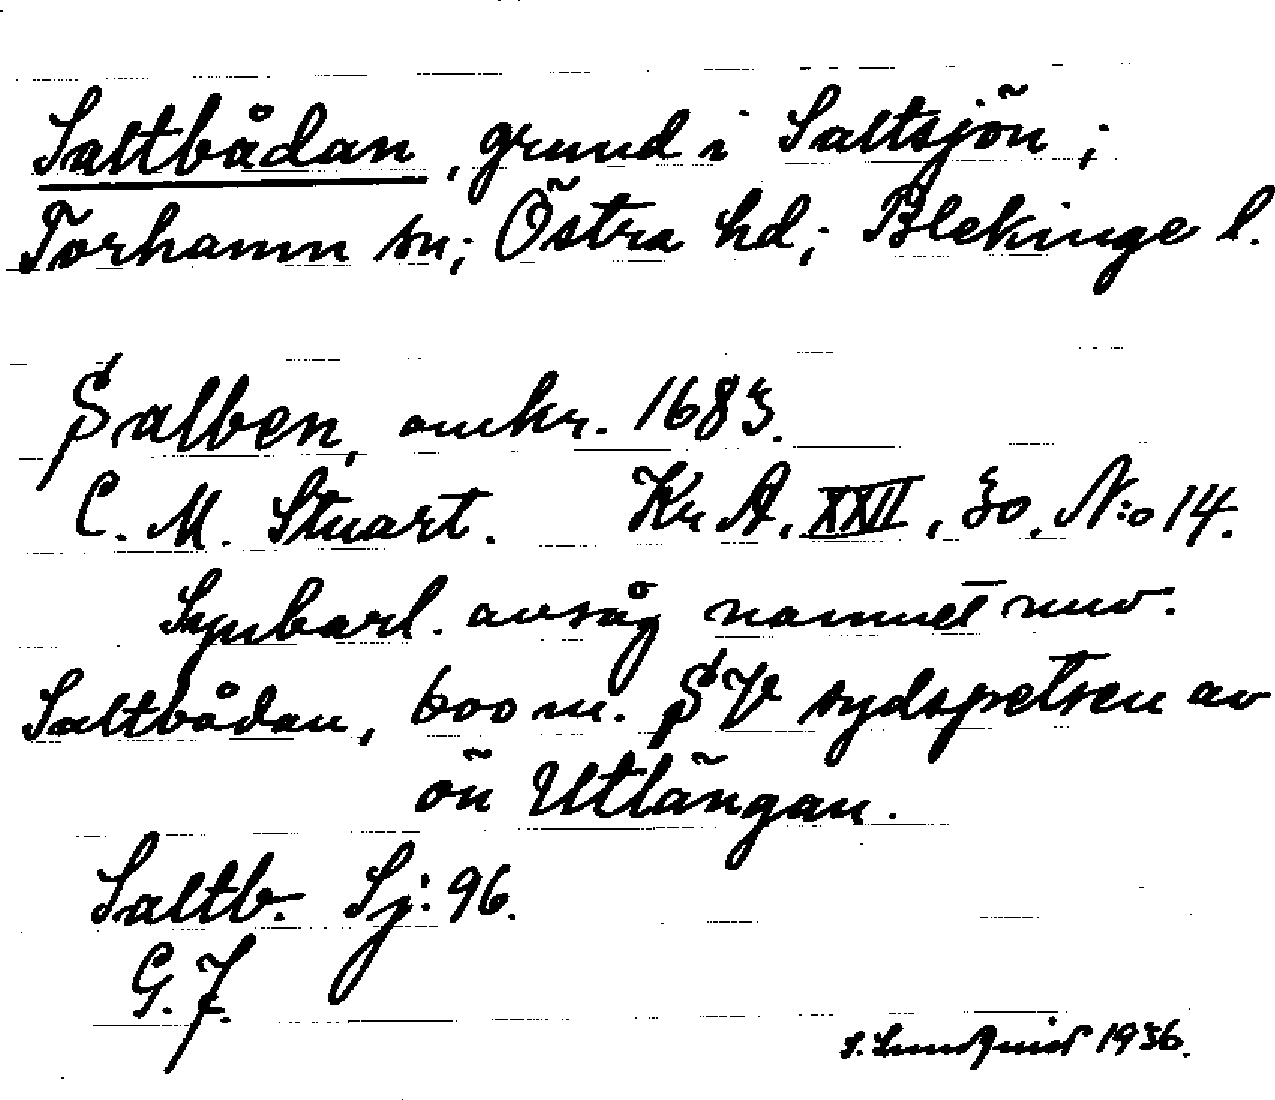 Saltbådan, grund i Saltsjön;
Torhamn sn; Östra hd; Blekinge l.
Salben, omkr. 1683.
C. M. Stuart. Kr A, XXII, 30. N:o 14.
Synbarl. avsåg namnet nuv.
Saltbådan, 600 m. SV sydspetsen av
ön Utlängan.
Saltb. Sj: 96.
G. F.
S. Lundquist 1936.